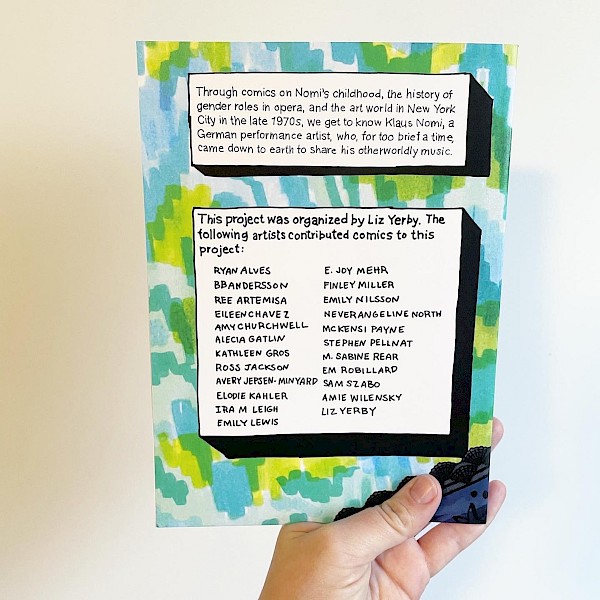 Through comics on Nomi's childhood, the history of
gender roles in opera, and the art world in New York
City in the late 1970s, we get to know Klaus Nomi, a
German performance artist, who, for too brief a time,
came down to earth to share his otherworldly music.
This project was organized by Liz Yerby. The
following artists contributed comics to this
project:
RYAN ALVES
BBANDERSSON
REE ARTEMISA
EILEEN CHAVEZ
AMY CHURCHWELL
ALECIA GATLIN
KATHLEEN GROS
ROSS JACKSON
AVERY JEPSEN-MINYARD
ELODIE KAHLER
IRA M LEIGH
EMILY LEWIS
E. JOY MEHR
FINLEY MILLER
EMILY NILSSON
NEVERANGELINE NORTH
MCKENSI PAYNE
STEPHEN PELLNAT
M. SABINE REAR
EM ROBILLARD
SAM SZABO
AMIE WILENSKY
LIZ YERBY